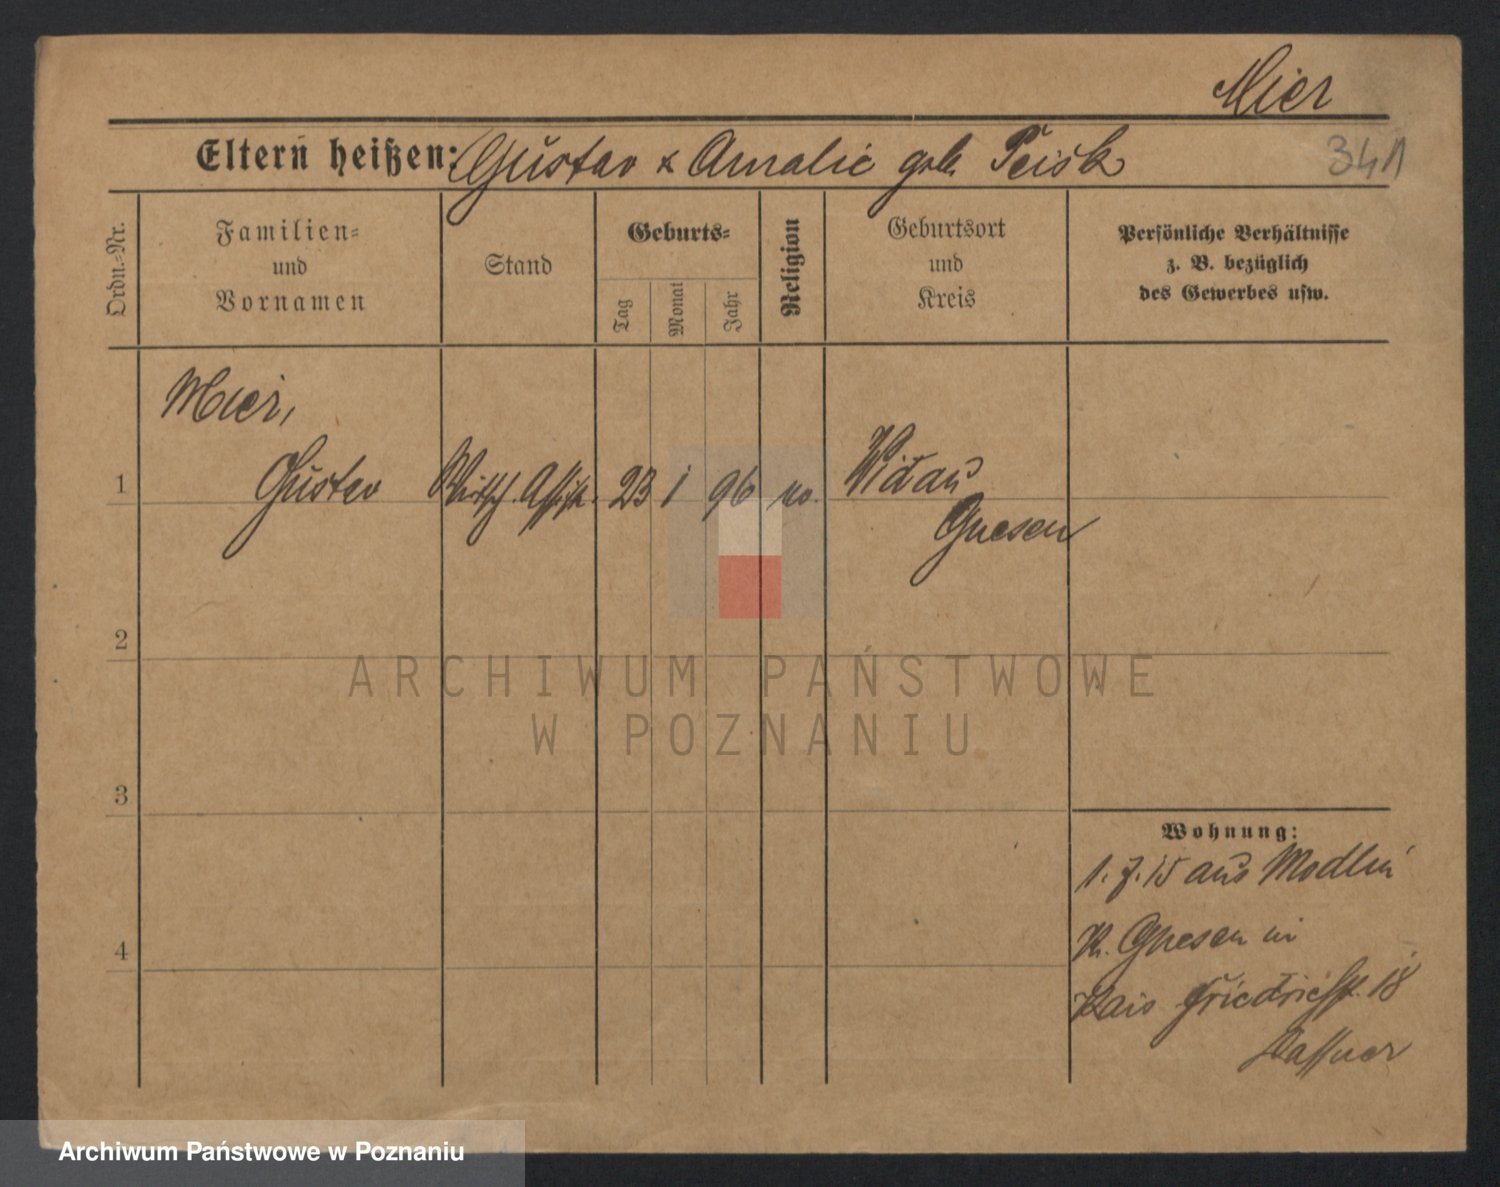 Mier
Eltern heißen: Gustav & Amalie geb. Peisk
341
Ordn.-Nr.
Familien-
und
Vornamen
Stand
Geburts-
Tag
Monat
Jahr
Religion
Geburtsort
und
Kreis
Persönliche Verhältnisse
z. B. bezüglich
des Gewerbes usw.
Mier,
1 Gustav Wirtsch. Assist. 23 1 96 Widau
Gnesen
2
3
4
Wohnung:
1. 7. 15 aus Modlin
Kr. Gnesen in
Kais. Friedrichst. 18
ARCHIWUM PAŃSTWOWE
W POZNANIU
Archiwum Państwowe w Poznaniu